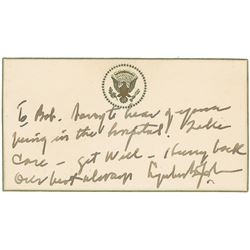 To Bob. Sorry to hear of your
being in the hospital. Take
care - get well - Hurry back
Our best always Lyndon B Johnson